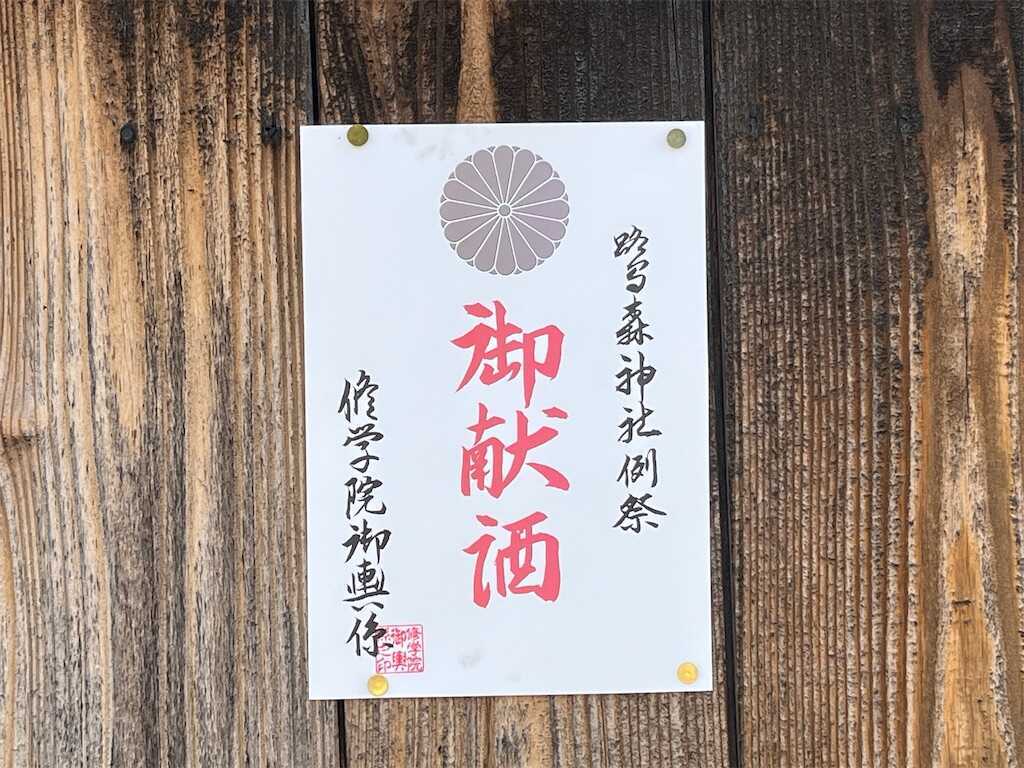 鷺森神社例祭
御献酒
修学院御輿係
修学院
御輿
係之印